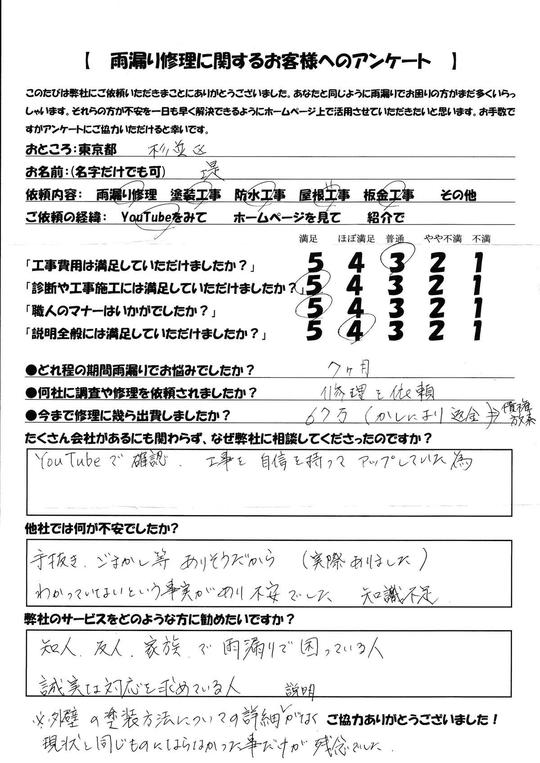 【 雨漏り修理に関するお客様へのアンケート 】
このたびは弊社にご依頼いただきまことにありがとうございました。あなたと同じように雨漏りでお困りの方がまだ多くいらっ
しゃいます。それらの方が不安を一日も早く解決できるようにホームページ上で活用させていただきたいと思います。お手数で
すがアンケートにご協力いただけると幸いです。
おところ：東京都 杉並区
お名前：(名字だけでも可) 堤
依頼内容： 雨漏り修理 塗装工事 防水工事 屋根工事 板金工事 その他
ご依頼の経緯： YouTubeをみて ホームページを見て 紹介で
満足 ほぼ満足 普通 やや不満 不満
「工事費用は満足していただけましたか？」 5 4 3 2 1
「診断や工事施工には満足していただけましたか？」 5 4 3 2 1
「職人のマナーはいかがでしたか？」 5 4 3 2 1
「説明全般には満足していただけましたか？」 5 4 3 2 1
●どれ程の期間雨漏りでお悩みでしたか？ 7ヶ月
●何社に調査や修理を依頼されましたか？ 修理を依頼
●今まで修理に幾ら出費しましたか？ 67万 (かしにより返金 ⇒ 債権放棄
たくさん会社があるにも関わらず、なぜ弊社に相談してくださったのですか？
YouTubeで確認. 工事を自信を持ってアップしていた為
他社では何が不安でしたか？
手抜き、ごまかし等 ありそうだから (実際ありました)
わかっていないという事実があり 不安でした 知識不足
弊社のサービスをどのような方に勧めたいですか？
知人、友人、家族、で雨漏りで困っている人
誠実な対応を求めている人 説明
※外壁の塗装方法についての詳細がなく ご協力ありがとうございました！
現状と同じものにはならなかった事だけが残念でした.